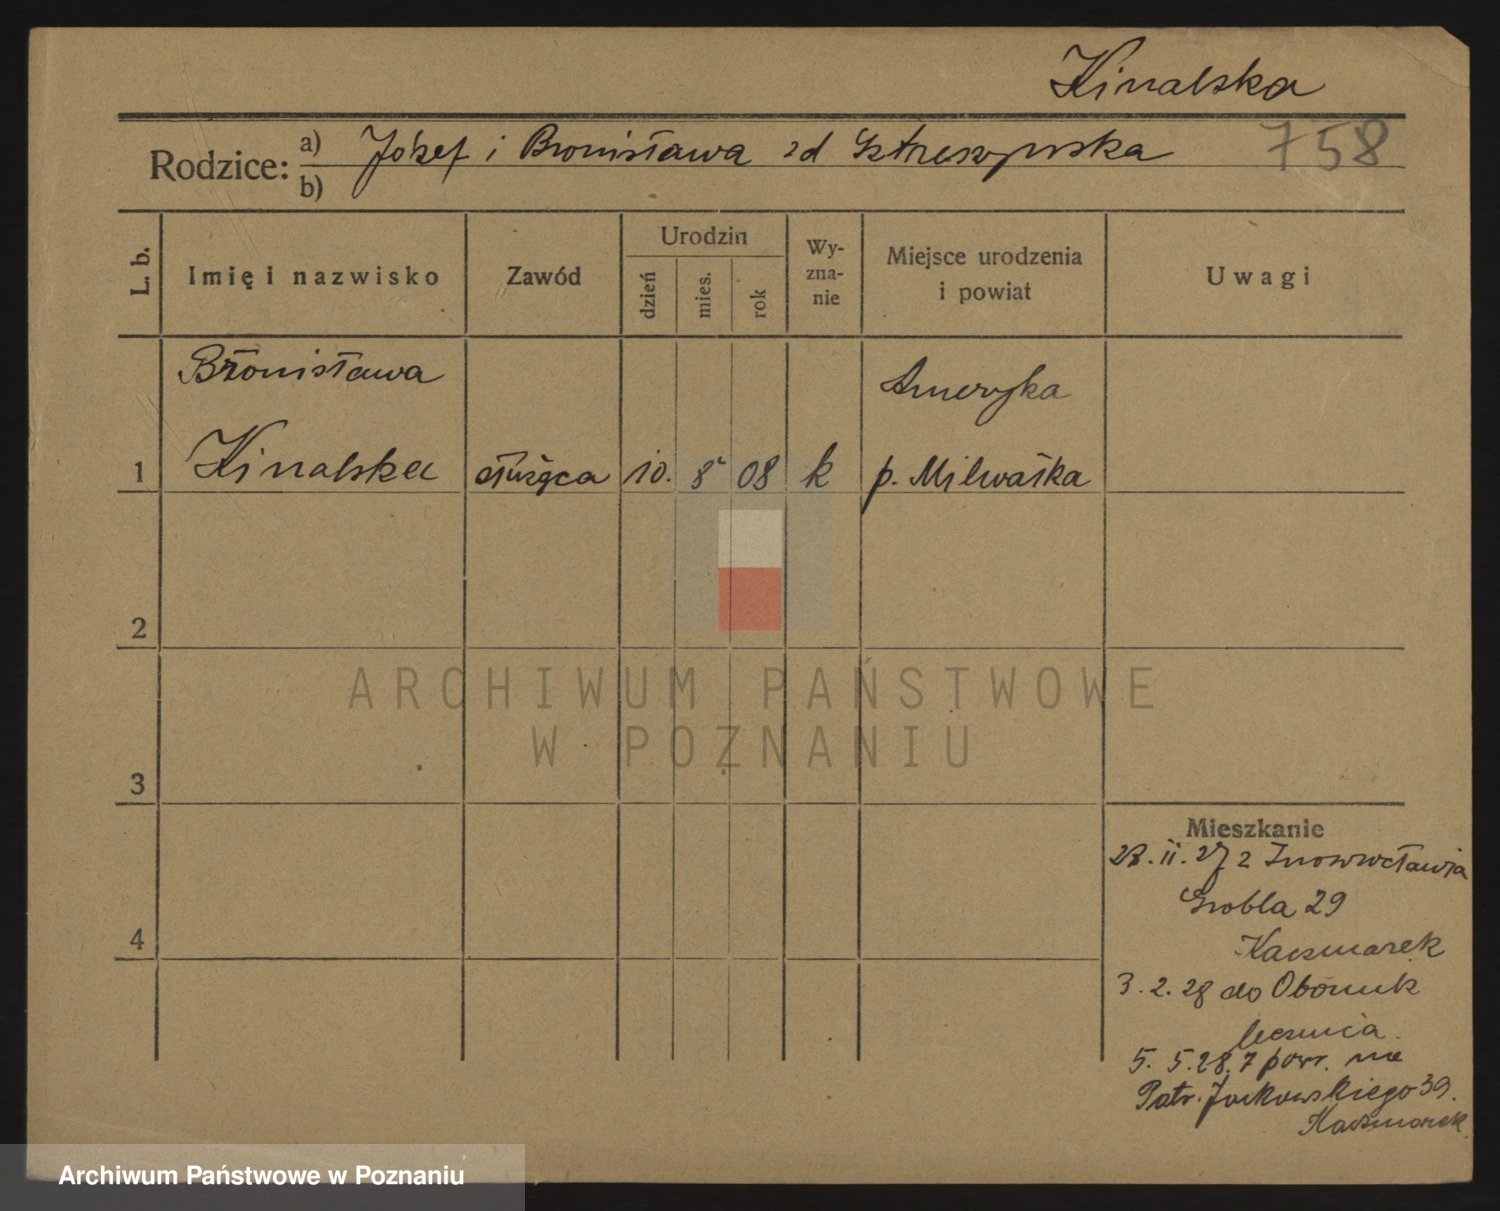 Kinalska
758
Rodzice: a) Józef i Bronisława zd
b)
L. b.
Imię i nazwisko
Zawód
Urodzin
dzień
mies.
rok
Wy-
zna-
nie
Miejsce urodzenia
i powiat
Uwagi
Bronisława
Ameryka
1 Kinalska służąca 10. 8 08 k p. Milwaśka
2
ARCHIWUM PAŃSTWOWE
W POZNANIU
3
Mieszkanie
28. II. 27 z Inowrocławia
Grobla 29
Kaczmarek
4
3. 2. 28 do Obornik
5. 5. 28. powr. na
Patr. Jackowskiego 39.
Kaczmarek
Archiwum Państwowe w Poznaniu